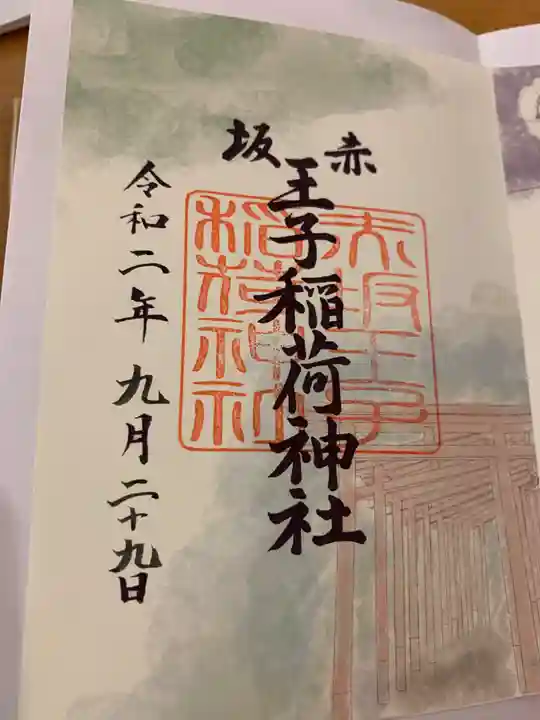 赤坂
王子稲荷神社
赤坂王子
稲荷神社
令和二年九月二十九日